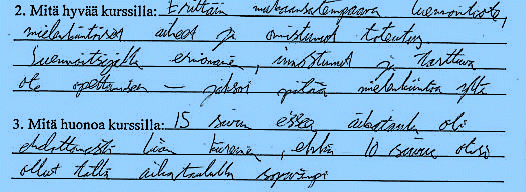 2. Mitä hyvää kurssilla: Erittäin mukaansatempaava luennointiote,
mielenkiintoiset aiheet ja onnistunut toteutus
Luennoitsijalla erinomainen, innostunut ja tarttuva
ote opettamiseen — jaksoi pitää mielenkiintoa yllä
3. Mitä huonoa kurssilla: 15 sivun essee aikataulu oli
ehdottomasti liian kireä, ehkä 10 sivua olisi
ollut tällä aikataululla sopivampi